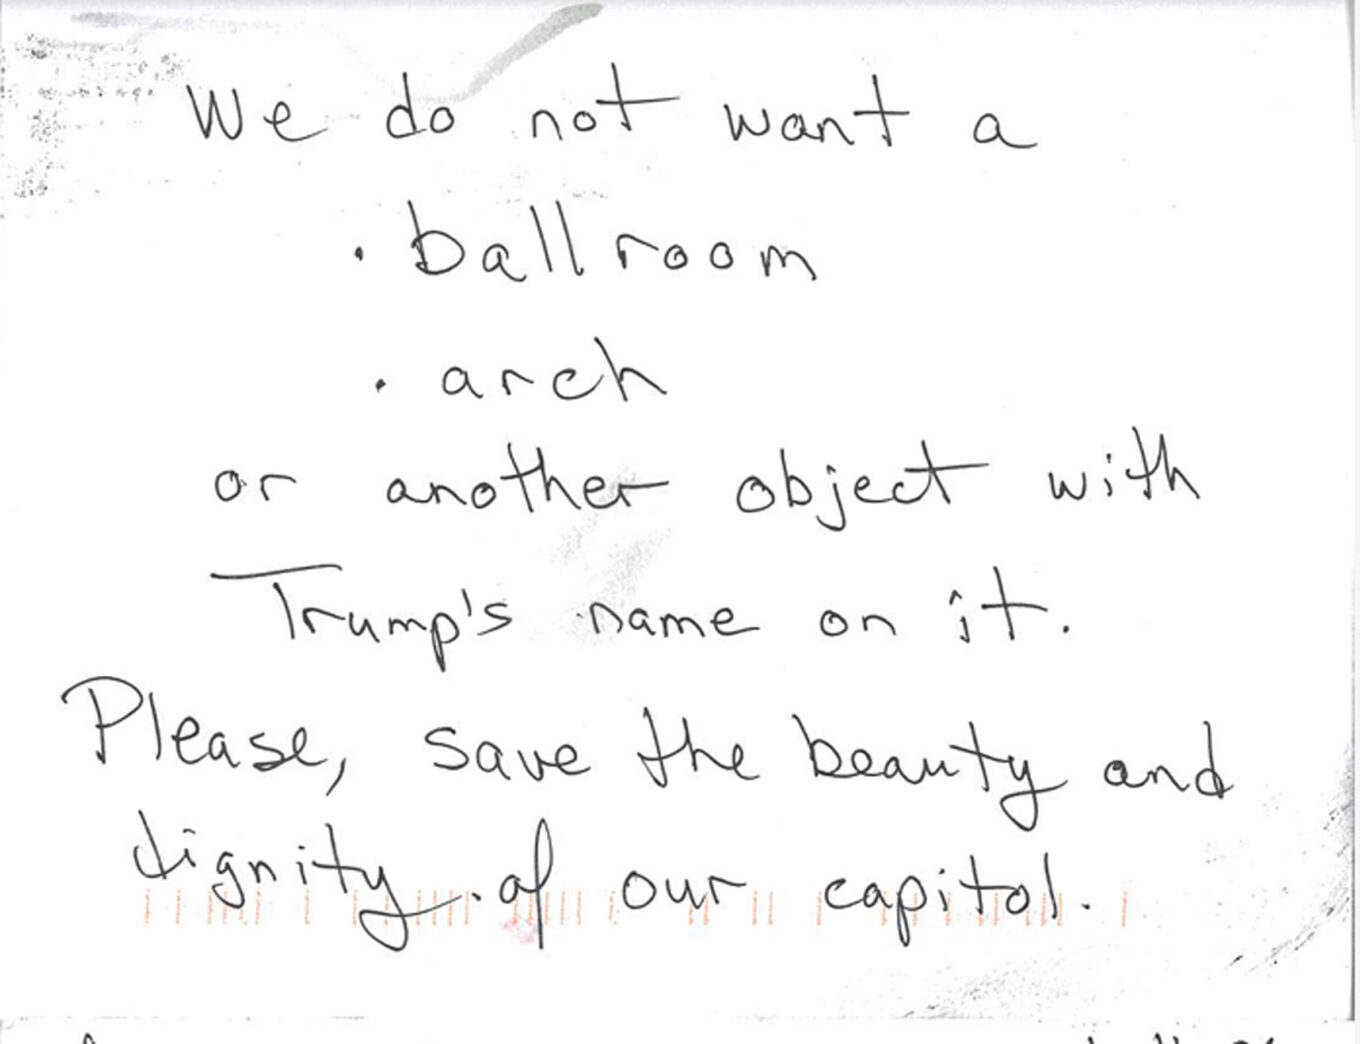 We do not want a
· ballroom
· arch
or another object with
Trump's name on it.
Please, save the beauty and
dignity of our capitol.